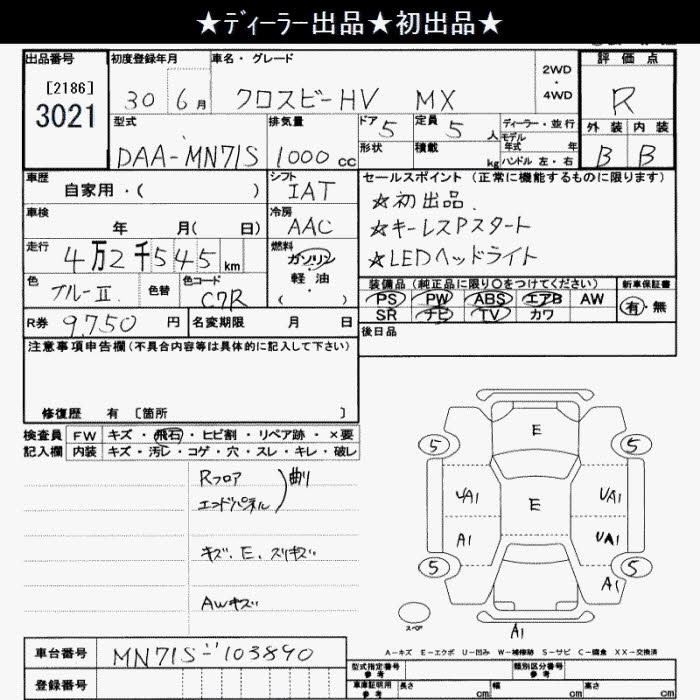 ★ディーラー出品★初出品★
出品番号
初度登録年月
車名・グレード
2WD
・
4WD
評価点
[2186]
3021
30 6月
クロスビーHV MX
R
型式
排気量
ドア 5
定員 5 人
ディーラー・並行
モデル
年式 年
外装 内装
DAA-MN71S
1000 cc
形状
積載 kg
ハンドル 左・右
B B
車歴
自家用・( )
シフト
IAT
セールスポイント (正常に機能するものに限ります)
車検
年 月( 日)
冷房
AAC
☆初出品.
☆キーレスPスタート
☆LEDヘッドライト
走行
4万2千545km
燃料
ガソリン
・
軽油
( )
色
ブルーⅡ
色替
色コード
C7R
装備品 (純正品に限り○をつけてください)
新車保証書
PS PW ABS エアB AW
SR ナビ TV カワ
有・無
R券 9,750 円
名変期限 月 日
後日品
注意事項申告欄(不具合内容等は具体的に記入して下さい)
修復歴 有 〔箇所 〕
検査員 FW キズ・飛石・ヒビ割・リペア跡・×要
記入欄 内装 キズ・汚レ・コゲ・穴・スレ・キレ・破レ
Rフロア
エンドパネル
曲り
キズ、E、スリキズ
AWキズ
E
5 5
UA1 E UA1
A1 UA1
5 5
A1
スペア
A1
A-キズ E-エクボ U-凹み W-補修跡 S-サビ C-腐食 XX-交換済
車台番号 MN71S-103890
登録番号
型式指定番号
参考
類別区分番号
参考
車庫証明用
参考
長さ cm
幅 cm
高さ cm